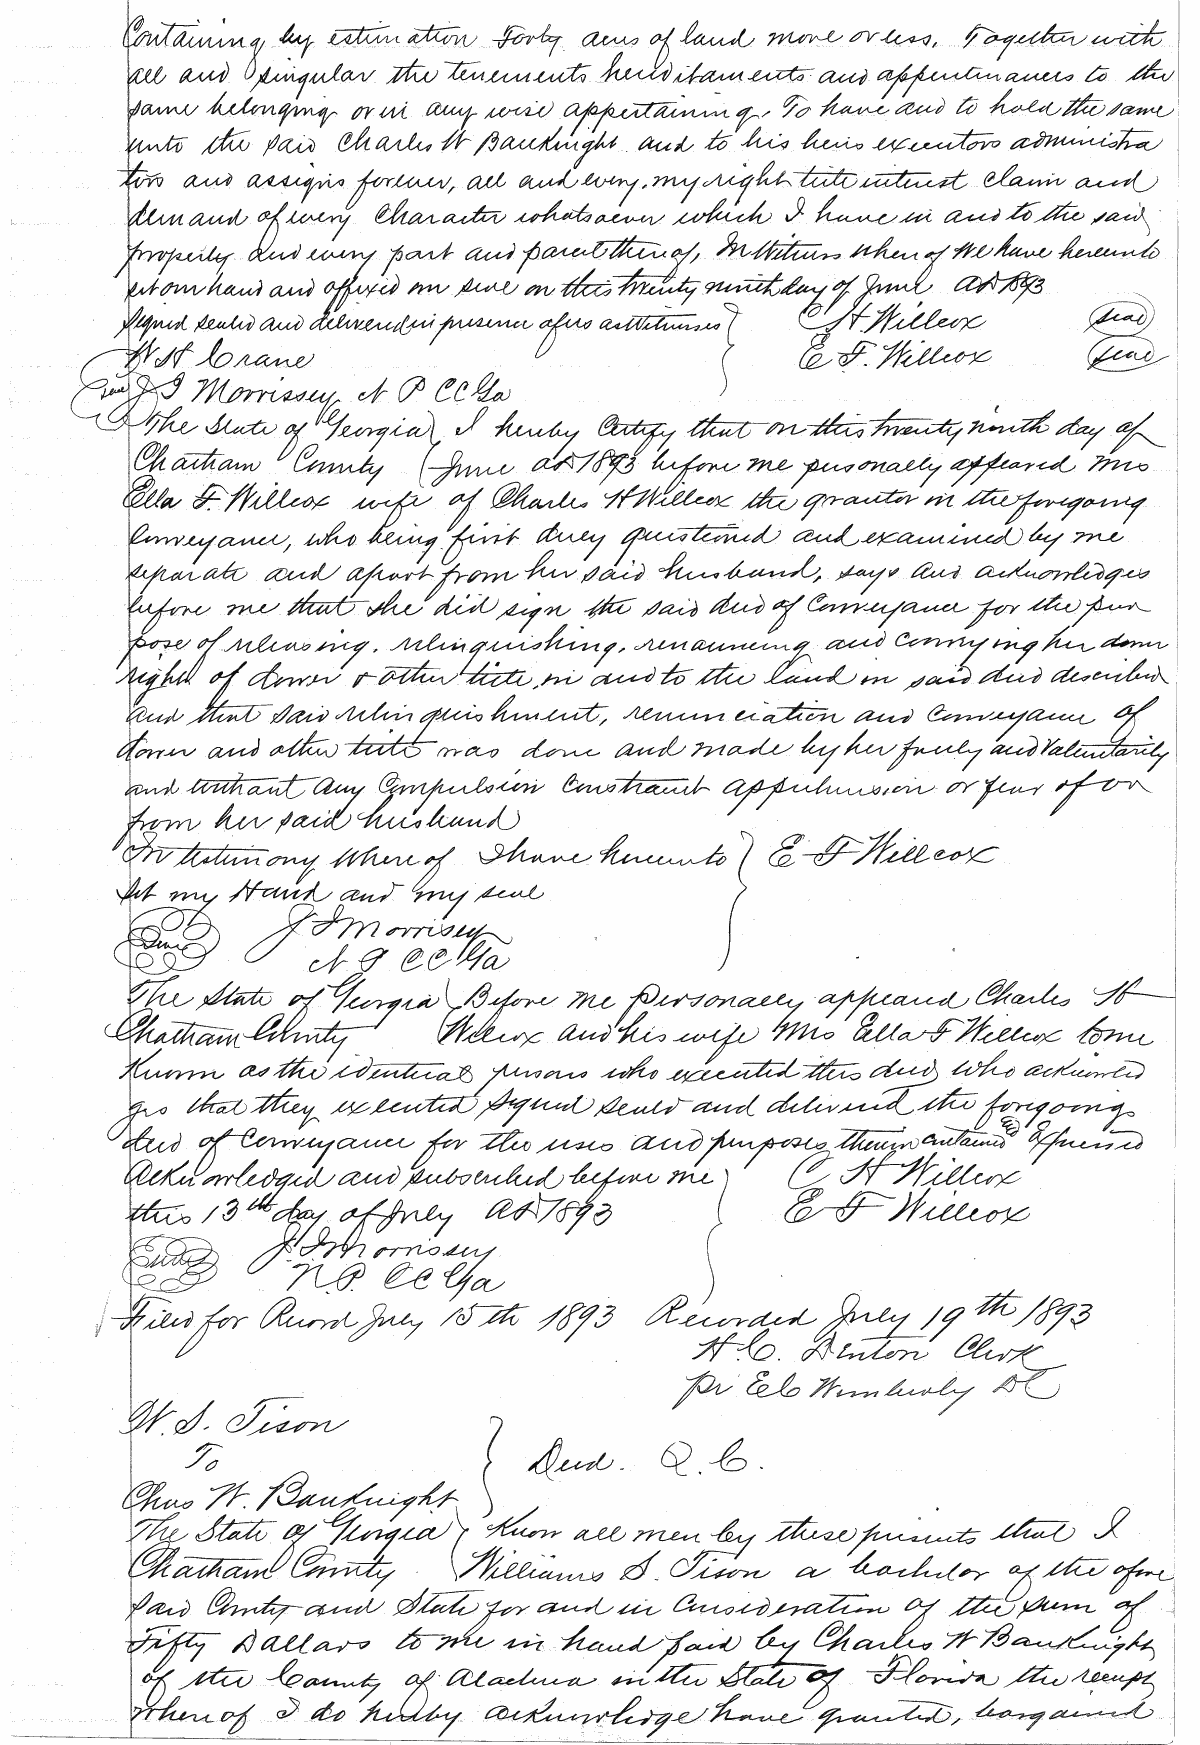 Containing by estimation Forty acres of land more or less. Together with
all and singular the tenements hereditaments and appertinances to the
same belonging or in any wise appertaining. To have and to hold the same
unto the said Charles W Bauknight and to his heirs executors administra
tors and assigns forever, all and every, my right title interest claim and
demand of every Character whatsoever which I have in and to the said
property and every part and parcel thereof, In Witness where of we have hereunto
set our hand and affixed our seal on this twenty ninth day of June AD 1893
Signed sealed and delivered in presence of us as Witnesses
C H Willcox seal
W H Crane
E F. Willcox seal
seal J F Morrissey, N P CC Ga
The State of Georgia I hereby Certify that on this twenty ninth day of
Chatham County June AD 1893 before me personally appeared Mrs
Ella F. Willcox wife of Charles H Willcox the grantor in the foregoing
Conveyance, who being first duly questioned and examined by me
separate and apart from her said husband, says and acknowledges
before me that she did sign the said deed of Conveyance for the pur
pose of releasing, relinquishing, renouncing and conveying her dower
right of dower & other title, in and to the land in said deed described
and that said relinquishment, renunciation and conveyance of
dower and other title was done and made by her freely and Voluntarily
and without any Compulsion Constraint apprehension or fear of or
from her said husband
In testimony where of I have hereunto E F Willcox
set my Hand and my seal
Seal J F Morrisey
N P CC Ga
The State of Georgia Before me Personally appeared Charles H
Chatham County Wilcox and his wife Mrs Ella F Willcox to me
Known as the identical persons who executed this deed, who acknowled
ges that they executed signed seald and deliverd the foregoing
deed of Conveyance for the uses and purposes, therein contained & Expressed
Acknowledged and subscribed before me C H Willcox
this 13th day of July AD 1893 E F Willcox
Seal J F Morrissey
N P. CC Ga
Filed for Record July 15th 1893 Recorded July 19th 1893
H. C. Denton Clerk
pr E C Wimberly DC
W. S. Tison
To Deed. Q. C.
Chas W. Bauknight
The State of Georgia Know all men by these presents that I
Chatham County Williams S. Tison a bachelor of the afore
said County and State for and in Consideration of the sum of
Fifty Dallars to me in hand paid by Charles W Bauknight
of the County of Alachua in the State of Florida the receipt
where of I do hereby acknowledge have granted, bargained